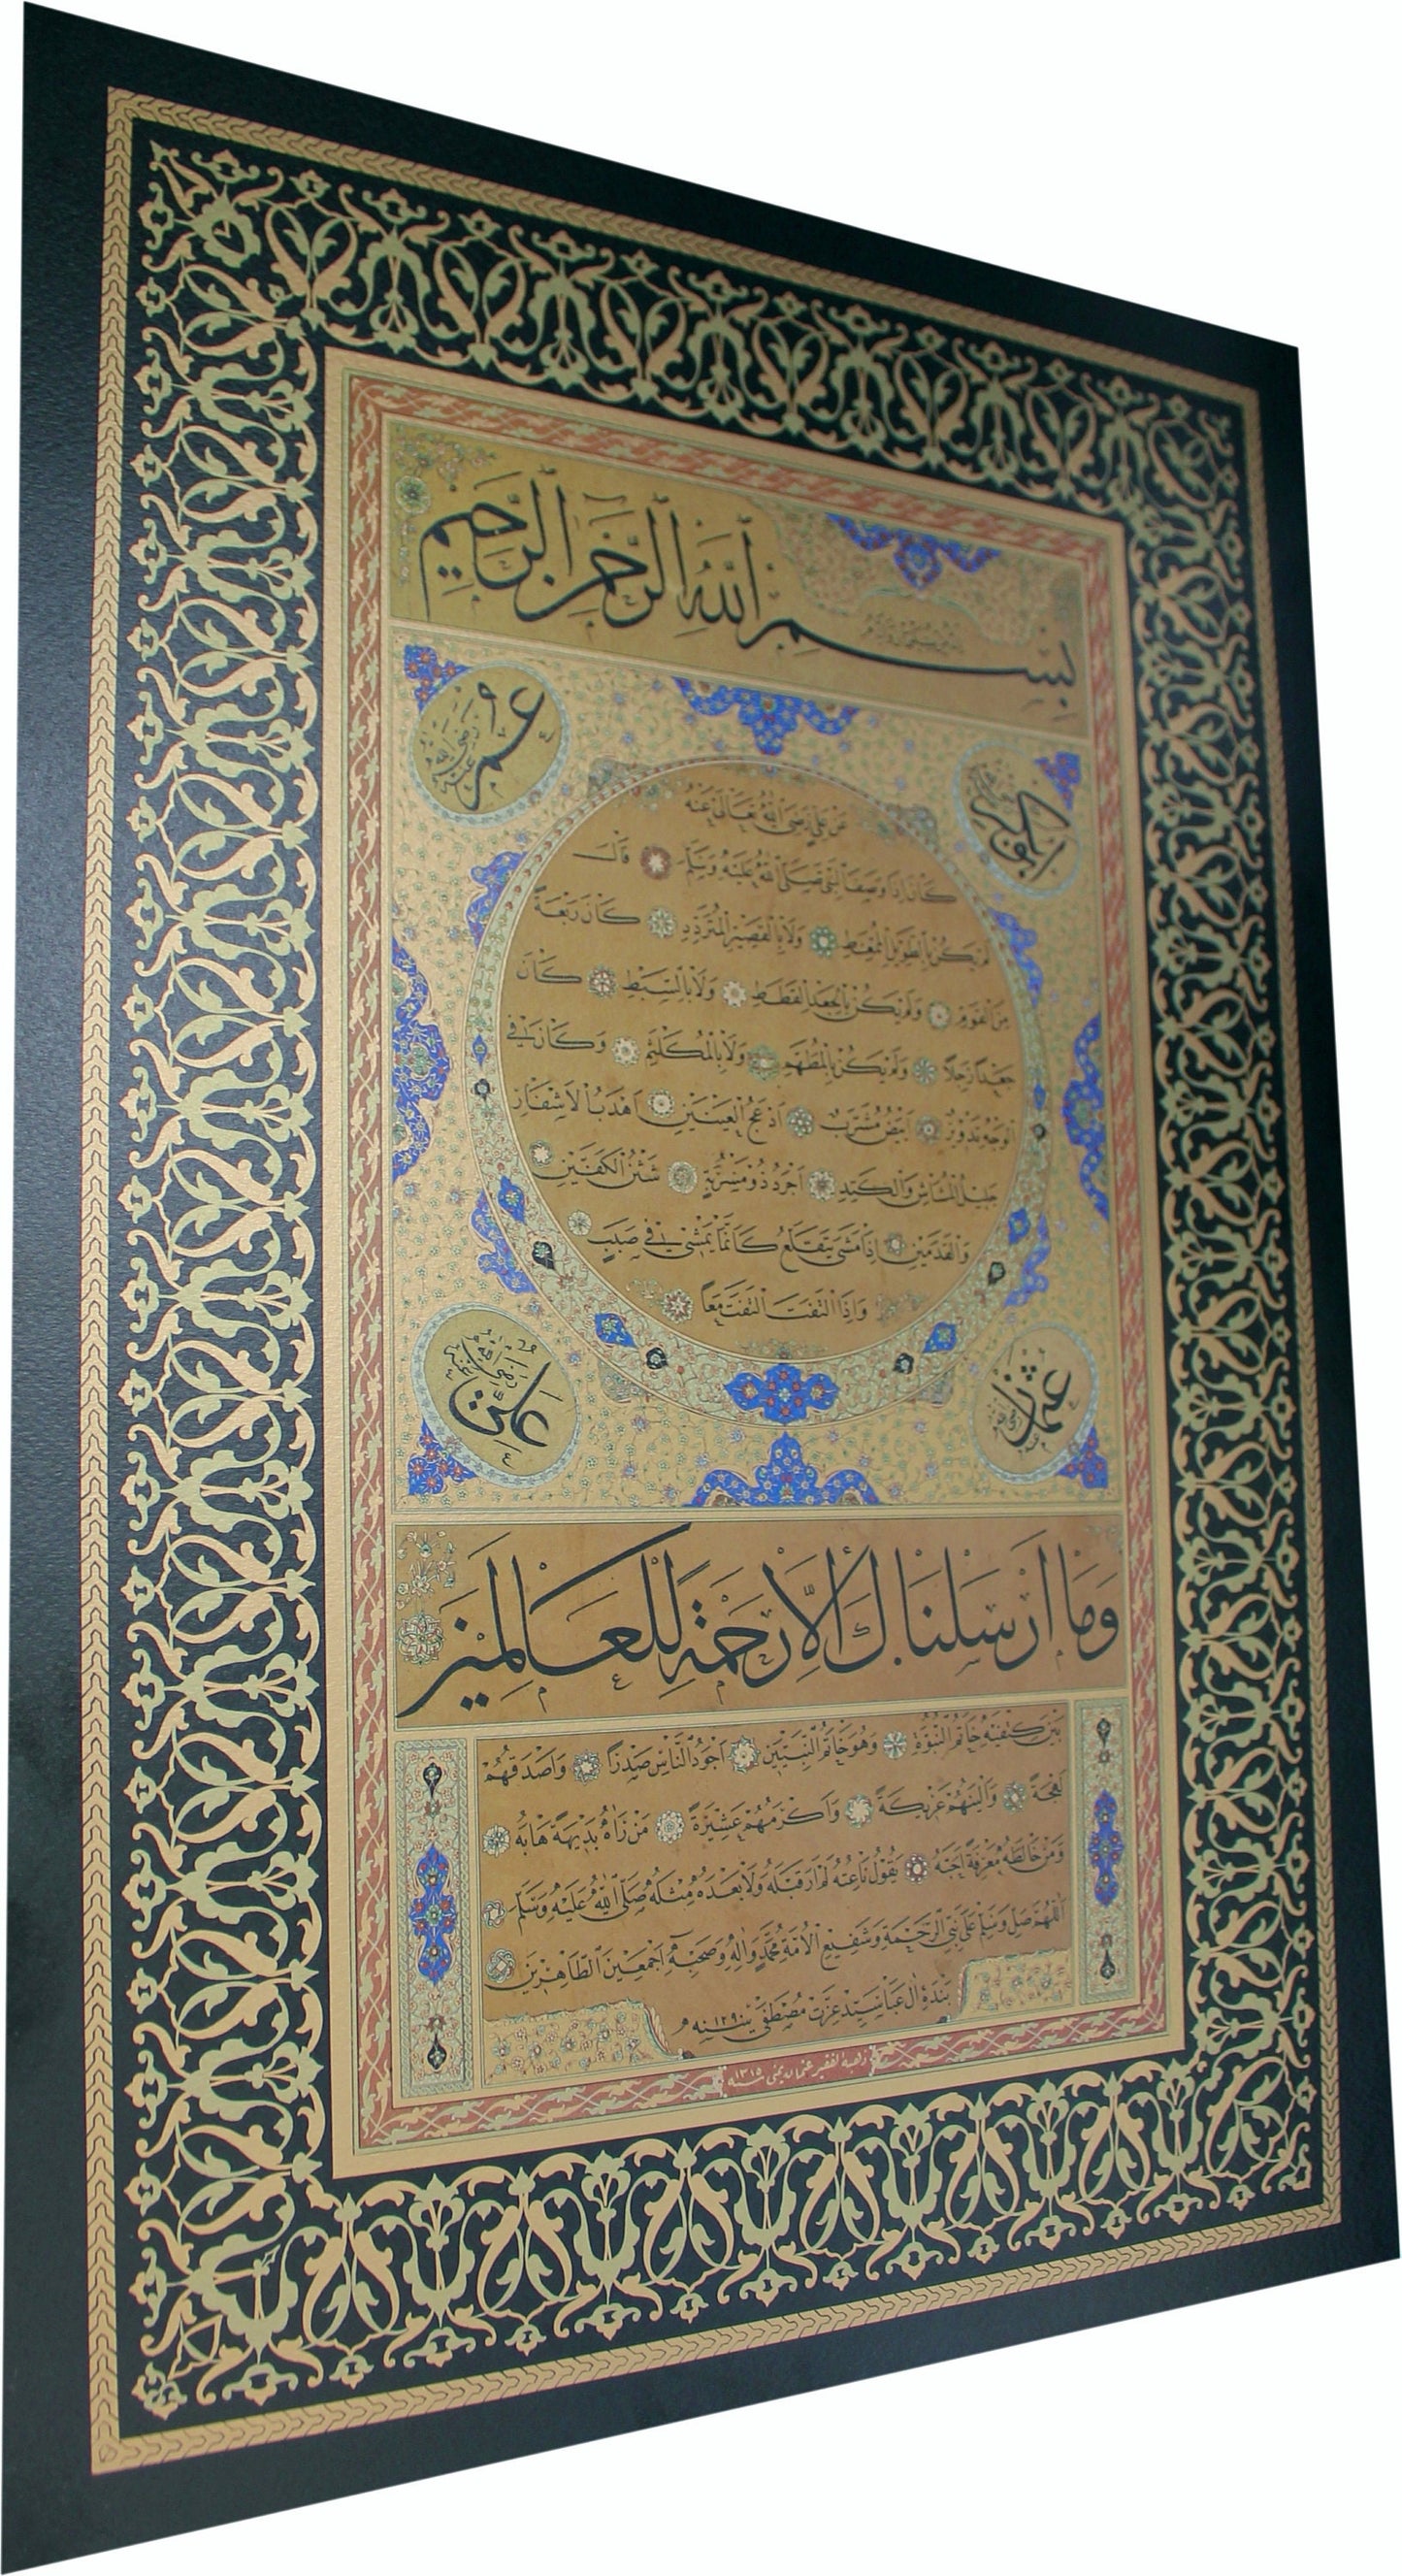 بِسْمِ اللهِ الرَّحْمٰنِ الرَّحِيمِ
ابو بكر رضي الله عنه
عمر رضي الله عنه
عَنْ عَلِيٍّ رَضِيَ اللهُ تَعَالٰى عَنْهُ
كَانَ اِذَا وَصَفَ النَّبِيَّ صَلَّى اللهُ عَلَيْهِ وَسَلَّمَ قَالَ
لَمْ يَكُنْ بِالطَّوِيلِ الْمُمَّغِطِ وَلَا بِالْقَصِيرِ الْمُتَرَدِّدِ كَانَ رَبْعَةً
مِنَ الْقَوْمِ وَلَمْ يَكُنْ بِالْجَعْدِ الْقَطَطِ وَلَا بِالسَّبِطِ كَانَ
جَعْدًا رَجِلًا وَلَمْ يَكُنْ بِالْمُطَهَّمِ وَلَا بِالْمُكَلْثَمِ وَكَانَ فِي
الْوَجْهِ تَدْوِيرٌ اَبْيَضُ مُشْرَبٌ اَدْعَجُ الْعَيْنَيْنِ اَهْدَبُ الْاَشْفَارِ
جَلِيلُ الْمُشَاشِ وَالْكَتَدِ اَجْرَدُ ذُو مَسْرُبَةٍ شَثْنُ الْكَفَّيْنِ
وَالْقَدَمَيْنِ اِذَا مَشٰى يَتَقَلَّعُ كَاَنَّمَا يَمْشِي فِي صَبَبٍ
وَاِذَا الْتَفَتَ الْتَفَتَ مَعًا
عثمان رضي الله عنه
علي رضي الله عنه
وَمَا اَرْسَلْنَاكَ اِلَّا رَحْمَةً لِلْعَالَمِينَ
بَيْنَ كَتِفَيْهِ خَاتَمُ النُّبُوَّةِ وَهُوَ خَاتَمُ النَّبِيِّينَ اَجْوَدُ النَّاسِ صَدْرًا وَاَصْدَقُهُمْ
لَهْجَةً وَاَلْيَنُهُمْ عَرِيكَةً وَاَكْرَمُهُمْ عَشِيرَةً مَنْ رَاٰهُ بَدِيهَةً هَابَهُ
وَمَنْ خَالَطَهُ مَعْرِفَةً اَحَبَّهُ يَقُولُ نَاعِتُهُ لَمْ اَرَ قَبْلَهُ وَلَا بَعْدَهُ مِثْلَهُ صَلَّى اللهُ عَلَيْهِ وَسَلَّمَ
اَللّٰهُمَّ صَلِّ وَسَلِّمْ عَلٰى نَبِيِّ الرَّحْمَةِ وَشَفِيعِ الْاُمَّةِ مُحَمَّدٍ وَاٰلِهِ وَصَحْبِهِ اَجْمَعِينَ الطَّاهِرِينَ
بَنْدَهٔ اٰلِ عَبَا سَيِّد عِزَّتْ مُصْطَفٰى سنه ١٢٩٠
ذهبه الفقير عثمان يمنى سنه ١٣١٥